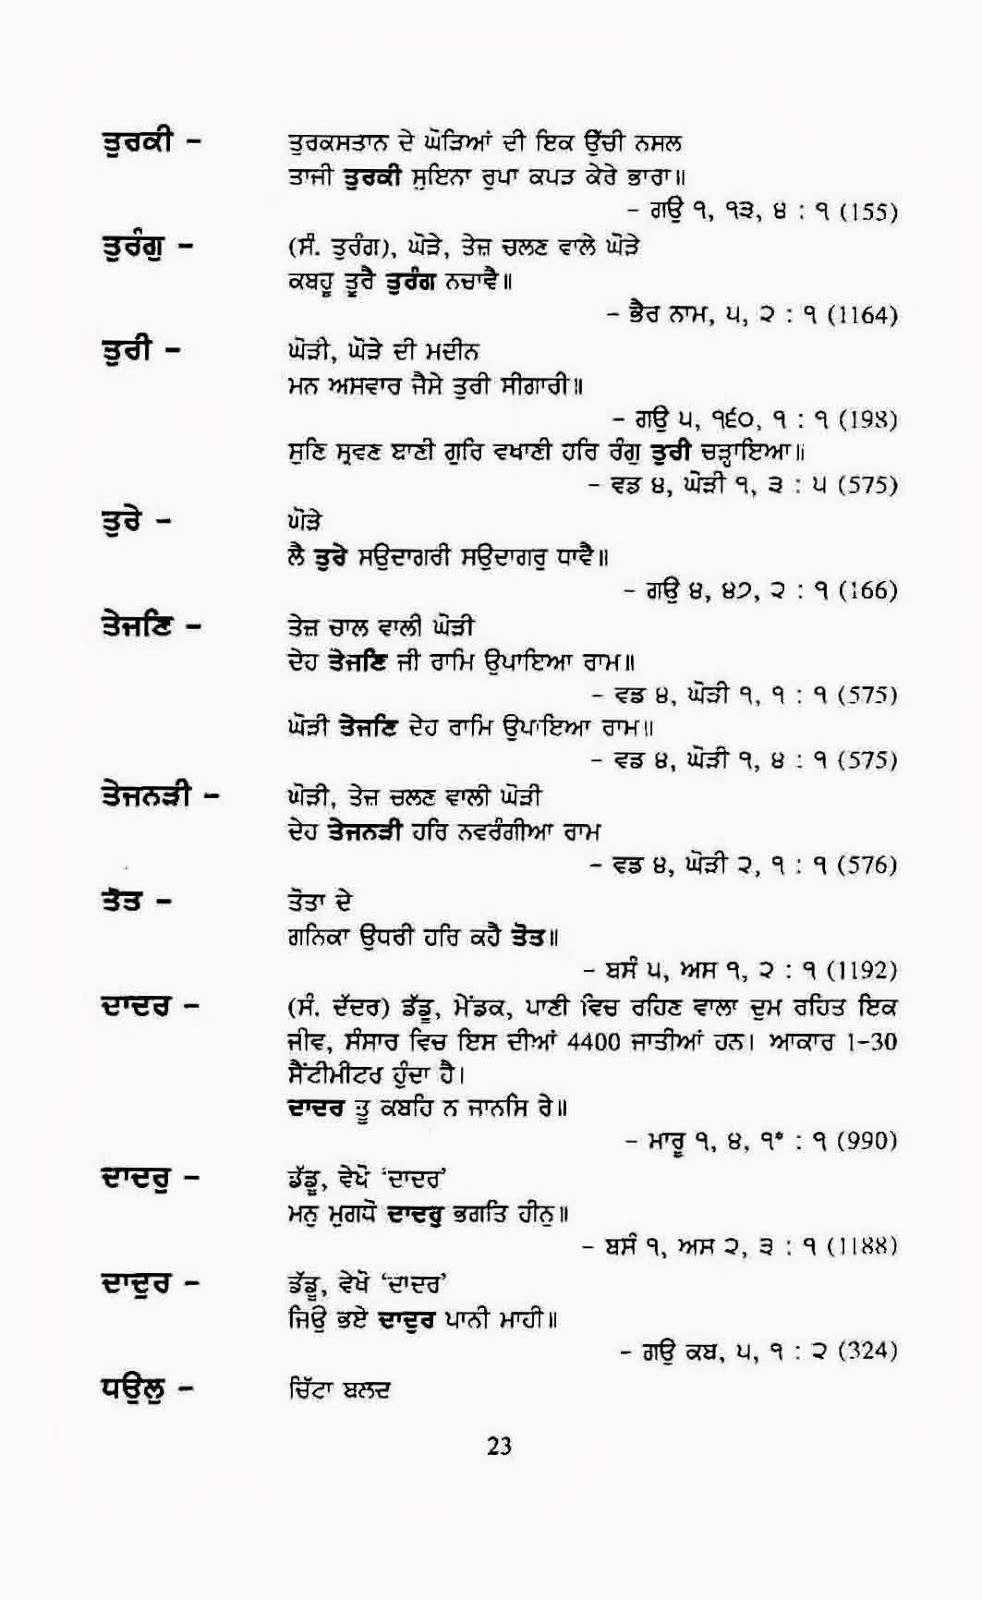 ਤੁਰਕੀ – ਤੁਰਕਸਤਾਨ ਦੇ ਘੋੜਿਆਂ ਦੀ ਇਕ ਉੱਚੀ ਨਸਲ
ਤਾਜੀ ਤੁਰਕੀ ਸੁਇਨਾ ਰੁਪਾ ਕਪੜ ਕੇਰੇ ਭਾਰਾ॥
– ਗਉ ੧, ੧੩, ੪ : ੧ (155)
ਤੁਰੰਗੁ – (ਸੰ. ਤੁਰੰਗ), ਘੋੜੇ, ਤੇਜ਼ ਚਲਣ ਵਾਲੇ ਘੋੜੇ
ਕਬਹੂ ਤੂਰੈ ਤੁਰੰਗ ਨਚਾਵੈ॥
– ਭੈਰ ਨਾਮ, ੫, ੨ : ੧ (1164)
ਤੁਰੀ – ਘੋੜੀ, ਘੋੜੇ ਦੀ ਮਦੀਨ
ਮਨ ਅਸਵਾਰ ਜੈਸੇ ਤੁਰੀ ਸੀਗਾਰੀ॥
– ਗਉ ੫, ੧੬੦, ੧ : ੧ (198)
ਸੁਣਿ ਸ੍ਰਵਣ ਬਾਣੀ ਗੁਰਿ ਵਖਾਣੀ ਹਰਿ ਰੰਗੁ ਤੁਰੀ ਚੜ੍ਹਾਇਆ॥
– ਵਡ ੪, ਘੋੜੀ ੧, ੩ : ੫ (575)
ਤੁਰੇ – ਘੋੜੇ
ਲੈ ਤੁਰੇ ਸਉਦਾਗਰੀ ਸਉਦਾਗਰੁ ਧਾਵੈ॥
– ਗਉ ੪, ੪੭, ੨ : ੧ (166)
ਤੇਜਣਿ – ਤੇਜ਼ ਚਾਲ ਵਾਲੀ ਘੋੜੀ
ਦੇਹ ਤੇਜਣਿ ਜੀ ਰਾਮਿ ਉਪਾਇਆ ਰਾਮ॥
– ਵਡ ੪, ਘੋੜੀ ੧, ੧ : ੧ (575)
ਘੋੜੀ ਤੇਜਣਿ ਦੇਹ ਰਾਮਿ ਉਪਾਇਆ ਰਾਮ॥
– ਵਡ ੪, ਘੋੜੀ ੧, ੪ : ੧ (575)
ਤੇਜਨੜੀ – ਘੋੜੀ, ਤੇਜ਼ ਚਲਣ ਵਾਲੀ ਘੋੜੀ
ਦੇਹ ਤੇਜਨੜੀ ਹਰਿ ਨਵਰੰਗੀਆ ਰਾਮ
– ਵਡ ੪, ਘੋੜੀ ੨, ੧ : ੧ (576)
ਤੋਤ – ਤੋਤਾ ਦੇ
ਗਨਿਕਾ ਉਧਰੀ ਹਰਿ ਕਹੈ ਤੋਤ॥
– ਬਸੰ ੫, ਅਸ ੧, ੨ : ੧ (1192)
ਦਾਦਰ – (ਸੰ. ਦੱਦਰ) ਡੱਡੂ, ਮੇਂਡਕ, ਪਾਣੀ ਵਿਚ ਰਹਿਣ ਵਾਲਾ ਦੁਮ ਰਹਿਤ ਇਕ
ਜੀਵ, ਸੰਸਾਰ ਵਿਚ ਇਸ ਦੀਆਂ 4400 ਜਾਤੀਆਂ ਹਨ। ਆਕਾਰ 1–30
ਸੈਂਟੀਮੀਟਰ ਹੁੰਦਾ ਹੈ।
ਦਾਦਰ ਤੂ ਕਬਹਿ ਨ ਜਾਨਸਿ ਰੇ॥
– ਮਾਰੂ ੧, ੪, ੧* : ੧ (990)
ਦਾਦਰੁ – ਡੱਡੂ, ਵੇਖੋ ‘ਦਾਦਰ’
ਮਨੁ ਮੁਗਧੋ ਦਾਦਰੁ ਭਗਤਿ ਹੀਨੁ॥
– ਬਸੰ ੧, ਅਸ ੨, ੩ : ੧ (1188)
ਦਾਦੁਰ – ਡੱਡੂ, ਵੇਖੋ ‘ਦਾਦਰ’
ਜਿਉ ਭਏ ਦਾਦੁਰ ਪਾਨੀ ਮਾਹੀ॥
– ਗਉ ਕਬ, ੫, ੧ : ੨ (324)
ਧਉਲੁ – ਚਿੱਟਾ ਬਲਦ
23